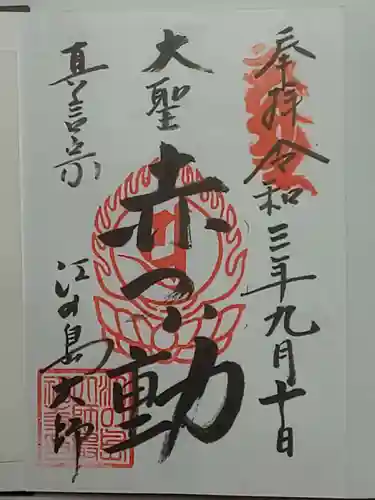 奉拝 令和三年九月十日
大聖
赤不動
真言宗
江の島大師